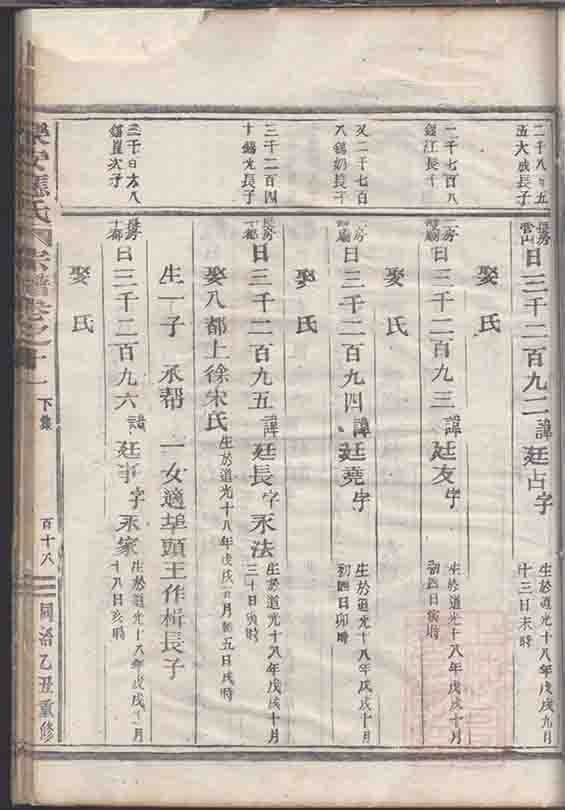 二千八百五
五大成長子
日三千二百九二 諱廷占字
生於道光十八年戊戌九月
十三日未時
娶氏
二千七百八
錫江長子
日三千二百九三 諱廷友字
生於道光十八年戊戌十月
初四日寅時
娶氏
又二千七百
八錫奶長子
日三千二百九四 諱廷堯字
生於道光十八年戊戌十月
初四日卯時
娶氏
三千二百四
十錫光長子
十都
日三千二百九五 諱廷長字永法
生於道光十八年戊戌十月
三十日寅時
娶八都上徐宋氏
生一子 永幇 一女適埠頭王作楫長子
錫崑次子
十都
日三千二百九六 諱廷事字永家
生於道光十八年戊戌十二月
十八日亥時
娶氏
氏宗譜卷之十一 下集 百十八 同治乙丑重修